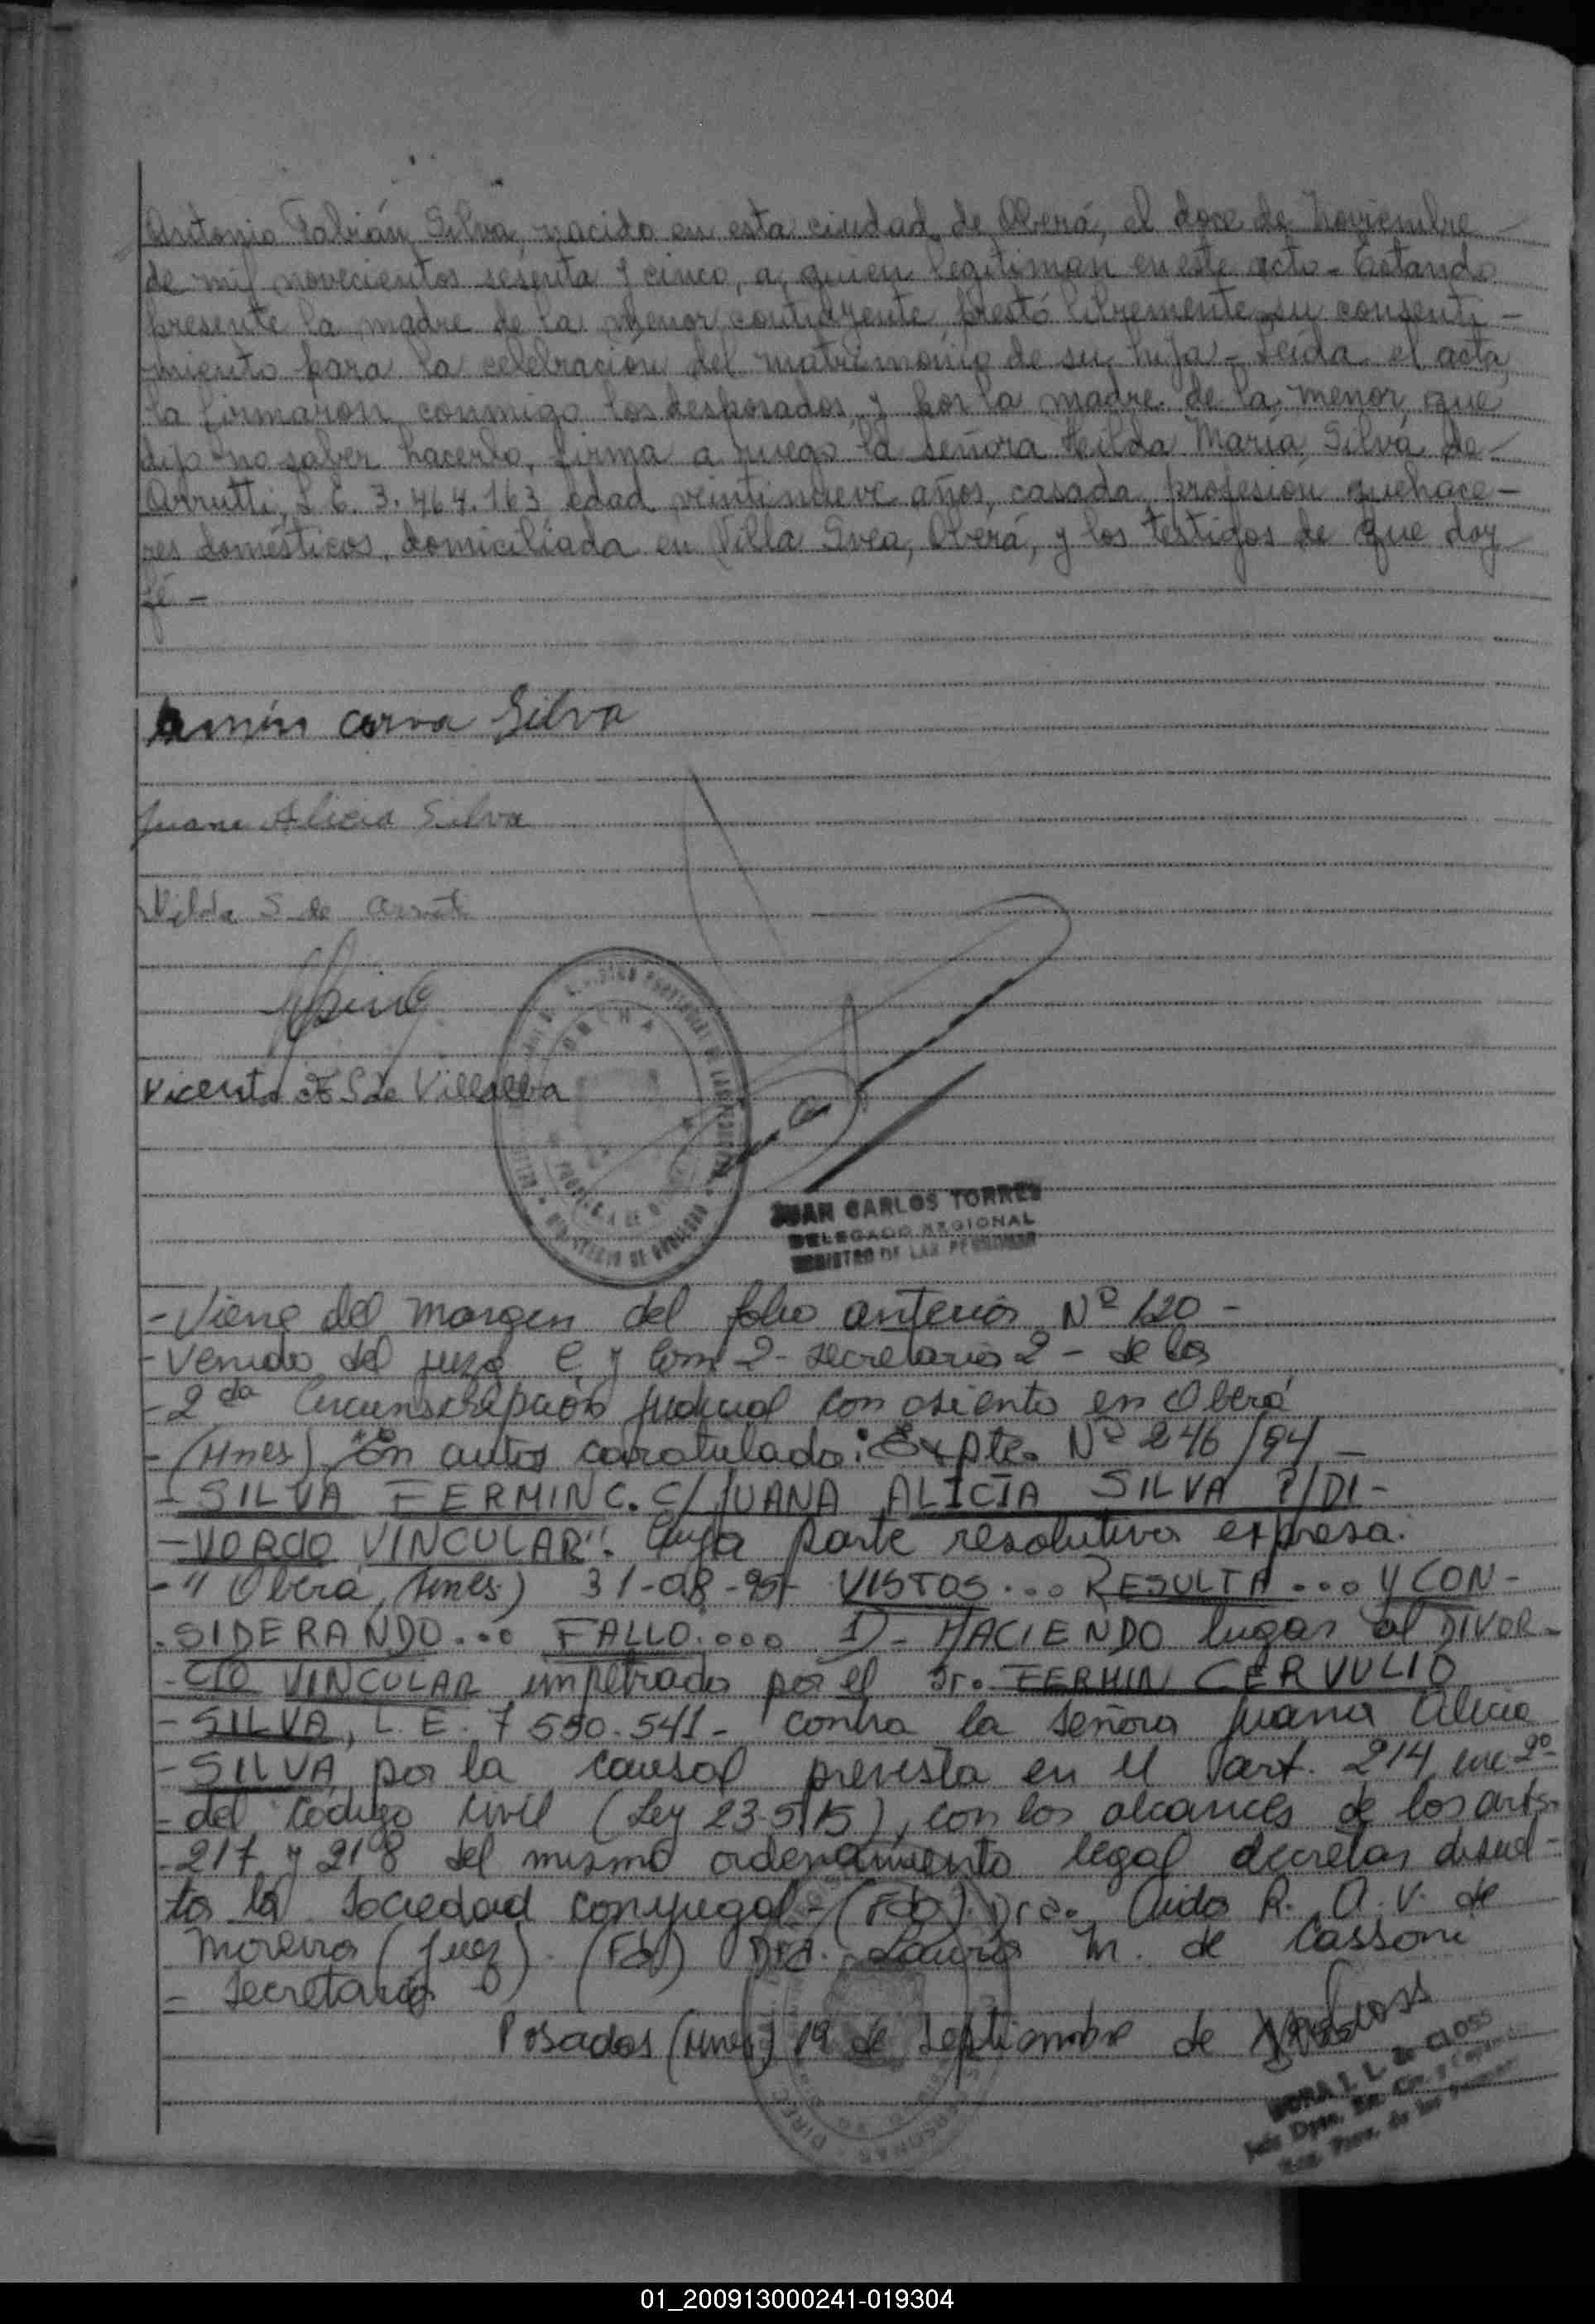 Antonio Fabián Silva, nacido en esta ciudad de Oberá, el doce de Noviembre
de mil novecientos sesenta y cinco, a quien legitiman en este acto - Estando
presente la madre de la menor contrayente prestó libremente su consenti -
miento para la celebración del matrimonio de su hija - Leída el acta,
la firmaron conmigo los desposados, y por la madre de la menor que
dijo no saber hacerlo, firma a ruego la señora Hilda María Silva de
Arrutti, L E. 3.464.163 edad veintinueve años, casada, profesión quehace-
res domésticos, domiciliada en Villa Svea, Oberá, y los testigos de que doy
fé -
Juana Alicia Silva
Hilda S de
Vicenta F S de Villalba
JUAN CARLOS TORRES
DELEGADO REGIONAL
REGISTRO DE LAS PERSONAS
- Viene del margen del folio anterior Nº 120 -
- Venido del juzg C y Com 2 - Secretaria 2 - de la
- 2da Circunscripción Judicial con asiento en Oberá
- (Mnes) "En autos caratulado: Expte. Nº 246/94 -
- SILVA FERMIN C. C/ JUANA ALICIA SILVA P/DI-
- VORCIO VINCULAR". Cuya parte resolutiva expresa:
- " Oberá, (Mnes) 31-08-95- VISTOS ... RESULTA ... Y CON -
- SIDERANDO ... FALLO .... 1) - HACIENDO lugar al DIVOR -
- CIO VINCULAR impetrado por el Sr. FERMIN CERVULIO
- SILVA, L. E. 7 550.541 - contra la señora Juana Alicia
- SILVA por la causal prevista en el art. 214 inc 2º
- del Código Civil (Ley 23.515), con los alcances de los arts.
- 217 y 218 del mismo ordenamiento legal decretar disuel -
ta la Sociedad conyugal - (Fdo). Dra. Aida R. A. V. de
Moreira (Juez). (Fdo) Dra. Laura M. de Cassoni
- Secretaria
Posadas (Mnes) 19 de Septiembre de
NORA I. L. de CLOSS
01_200913000241-019304